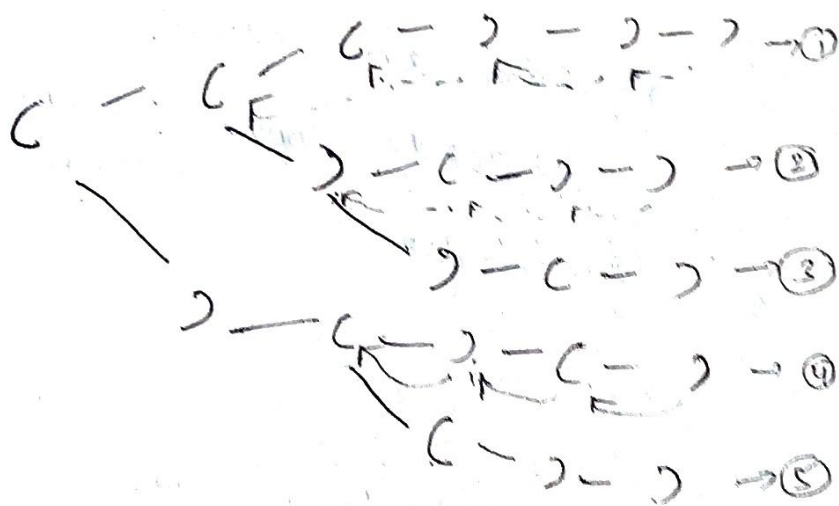 ( - ) - ) - ) → ①
( - (
) - ( - ) - ) → ②
) - ( - ) → ③
) - ( - ) - ( - ) → ④
( - ) - ) → ⑤